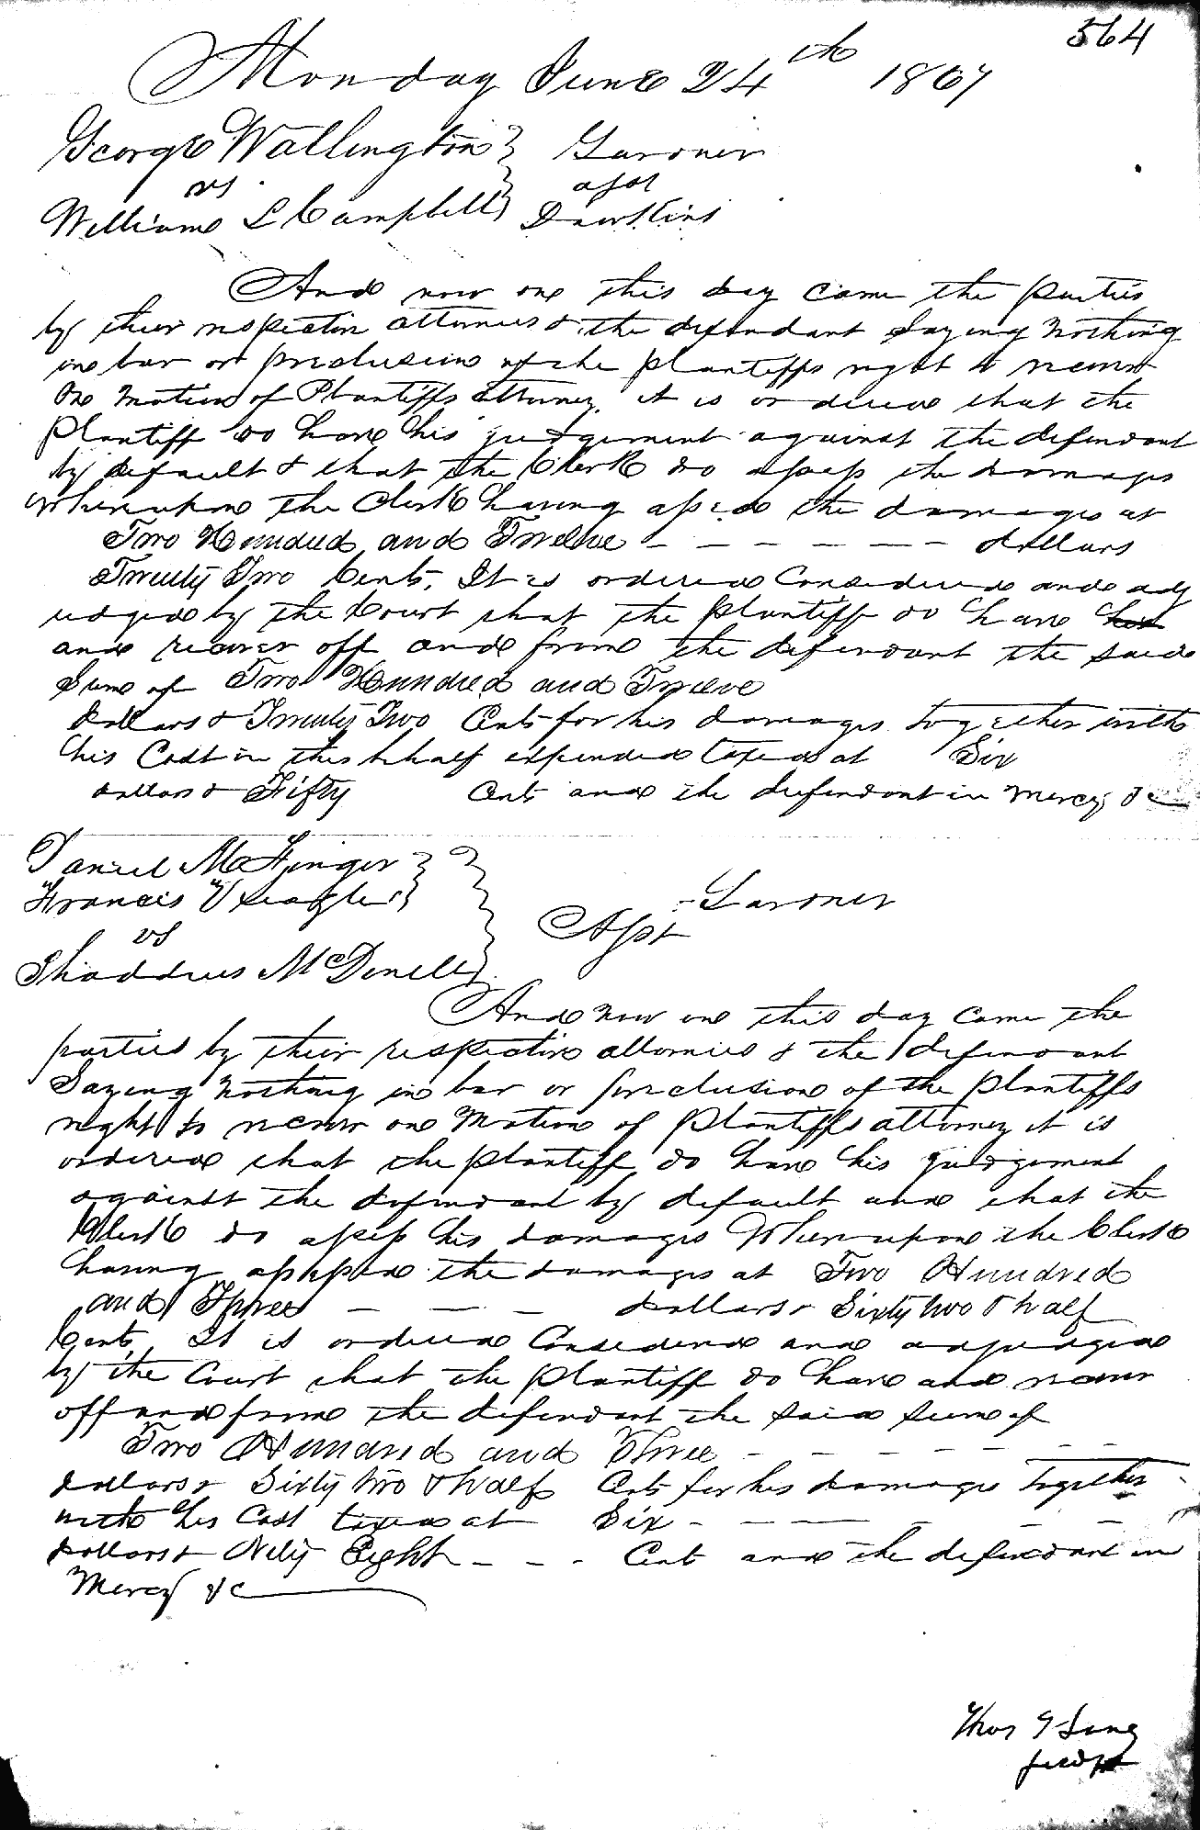 564
Monday June 24th 1867
George Wallington } Gardner
vs apst
William L Campbell } Dawkins
And now on this day came the parties
by their respective attorneys & the defendant Saying Nothing
in bar or preclusion of the plantiffs right to recover
One Motion of Plantiffs attorney, it is ordered that the
Plantiff do have his judgement against the defendant
by default & that the Clerk do assess the damages
Whereupon the Clerk having assed the damages at
Two Hundred and Twelve - - - - - - dollars
Twenty Two Cents, It is ordered Considered and adj
udged by the Court that the plantiff do have his
and recover off and from the defendant the said
Sum of Two Hundred and Twelve
dollars & Twenty Two Cents for his damages together with
his Cost in this behalf expended taxed at Six
dollars & Fifty Cents and the defendant in Mercy &c
Daniel McFinger }
Francis V Seagler } Gardner
vs Apst
Shaddrus McDonell }
And now on this day came the
parties by their respective attornies & the defendant
Saying Nothing in bar or forclusion of the plantiffs
right to recover one Motion of plantiffs attorney it is
ordered that the plantiff do have his judgement
against the defendant by default and that the
Clerk do assess his damages Whereupon the Clerk
having assessed the damages at Two Hundred
and Three - - - dollars & Sixty two & half
Cents, It is ordered Considered and adjudged
by the Court that the plantiff do have and recover
off and from the defendant the said sum of
Two Hundred and Three - - - - - -
dollars & Sixty two & half Cents for his damages together
with his Cost taxed at Six - - - - - -
dollars & Nity Eight - - - Cents and the defendant in
Mercy &c
Thos Long